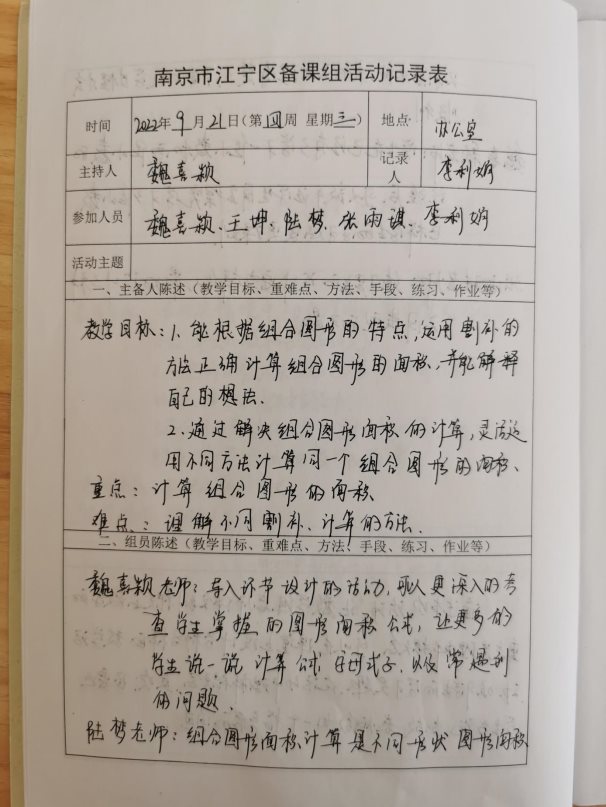 南京市江宁区备课组活动记录表
时间 2022年9月21日(第四周 星期三) 地点 办公室
主持人 魏喜颖 记录人 李利娟
参加人员 魏喜颖、王坤、陆梦、张雨琪、李利娟
活动主题
一、主备人陈述(教学目标、重难点、方法、手段、练习、作业等)
教学目标:1.能根据组合图形的特点,运用割补的
方法正确计算组合图形的面积,并能解释
自己的想法.
2.通过解决组合图形面积的计算,灵活运
用不同方法计算同一个组合图形的面积、
重点:计算组合图形的面积
难点:理解不同割补、计算的方法.
二、组员陈述(教学目标、重难点、方法、手段、练习、作业等)
魏喜颖老师:导入环节设计的活动,可以更深入的考
查学生掌握的图形面积公式,让更多的
学生说一说计算公式 式子,以及常遇到
的问题.
陆梦老师:组合图形面积计算是不同形状图形面积